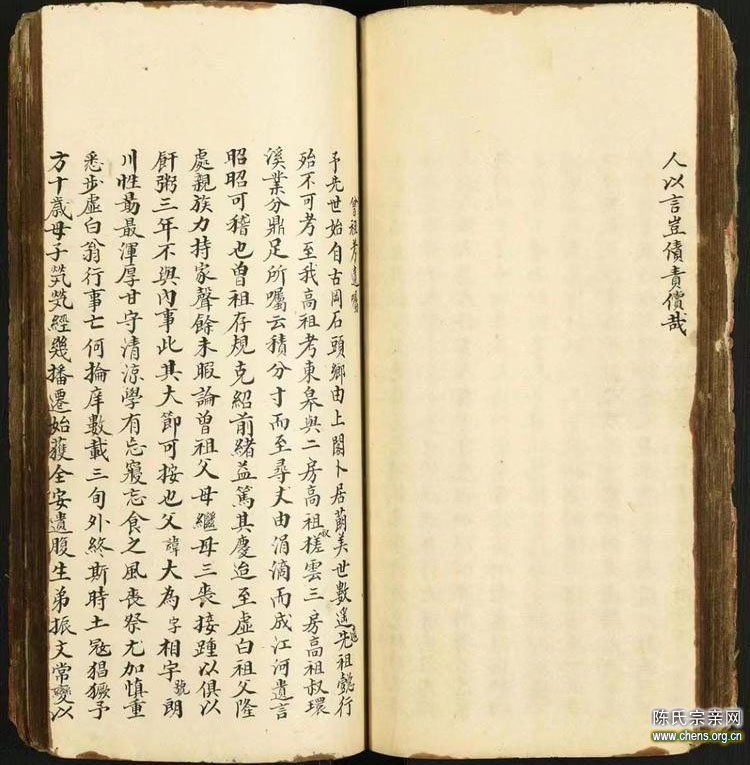 人以言豈債責償哉
曾祖考遺囑
予先世始自古岡石頭鄉由上閣卜居蓢美世數遥遠先祖懿行
殆不可考至我高祖考東皋與二房高祖叔槎雲三房高祖叔環
溪業分鼎足所囑云積分寸而至尋丈由涓滴而成江河遺言
昭昭可稽也曾祖存規克紹前緒益篤其慶迨至虛白祖父隆
處親族力持家聲餘未暇論曾祖父母繼母三喪接踵以俱以
飦粥三年不與內事此其大節可按也父諱大為字相宇號朗
川性最渾厚甘守清涼學有忘寢忘食之風喪祭尤加慎重
悉步虛白翁行事亡何掄庠數載三旬外終斯時土冦猖獗予
方十歲母子煢煢經幾播遷始獲全安遺腹生弟振文常變以
陈氏宗亲网
www.chens.org.cn